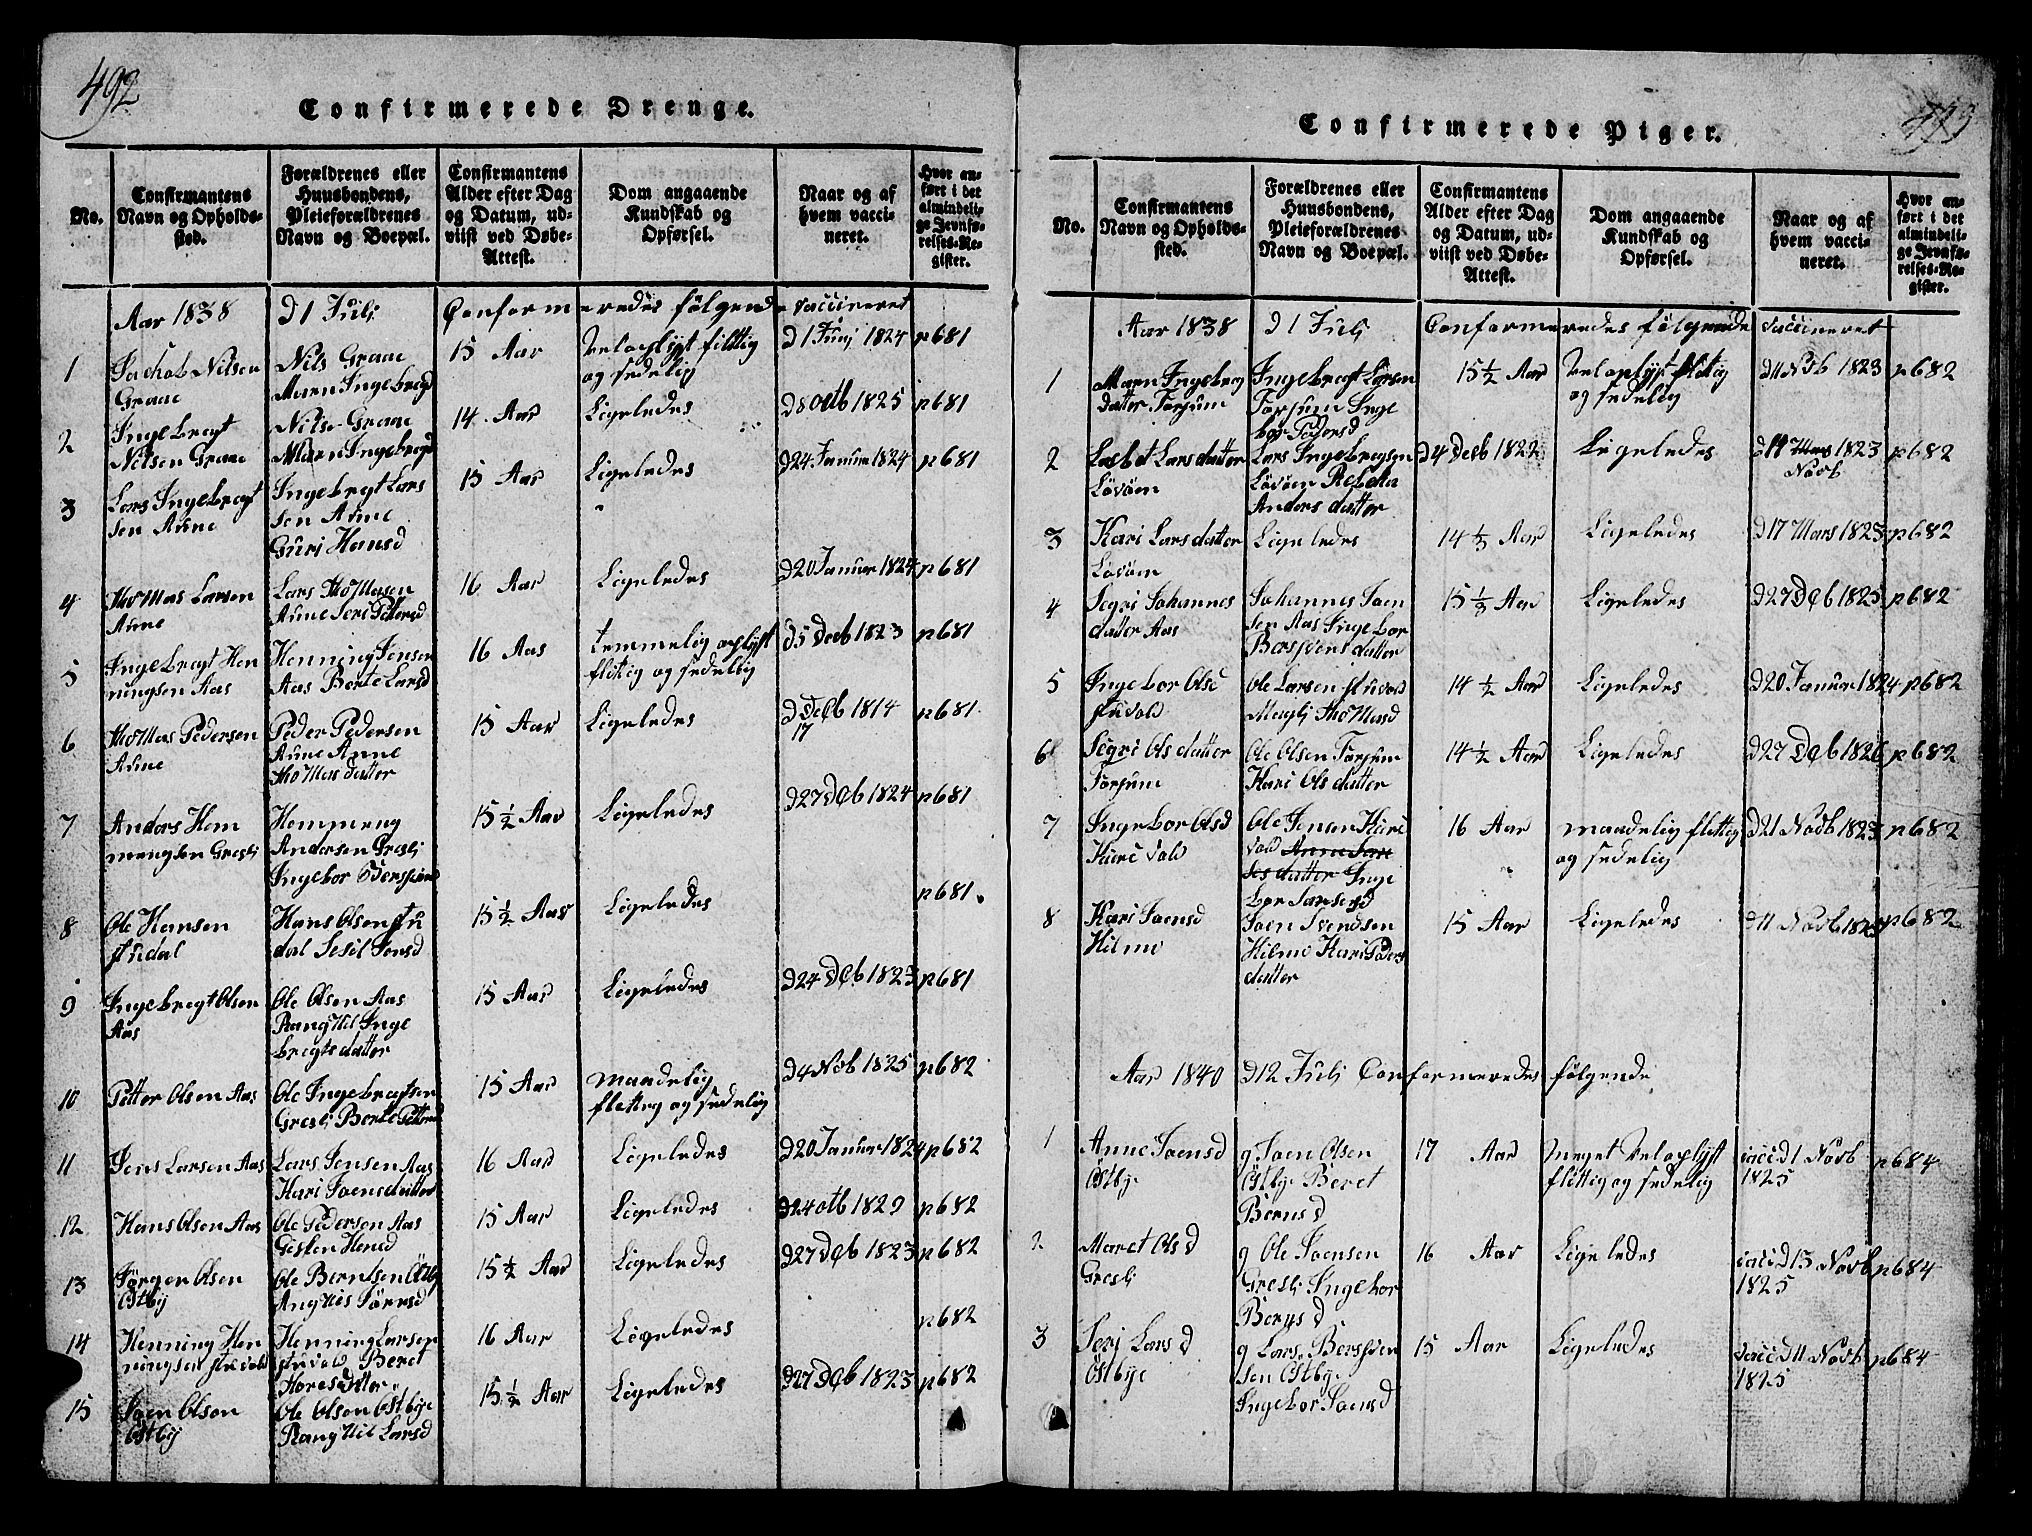 492
Confirmerede Drenge.
No.
Confirmantens Navn og Opholdssted.
Forældrenes eller Huusbondens, Pleieforældrenes Navn og Boepæl.
Confirmantens Alder efter Dag og Datum, udviist ved Døbe-Attest.
Dom angaaende Kundskab og Opførsel.
Naar og af hvem vaccineret.
Hvor anført i det almindelige Jevnførelses-Register.
Aar 1838 d 1 Julj Conformeredes følgende vaccineret
1 Jachob Nilsen Graae
Nils Graae Maren Ingebregd
15 Aar
Veloplyst flittig og sedelig
d 1 Junj 1824
p 681
2 Ingebregt Nilsen Graae
Nils Graae Maren Ingebregd
14 Aar
Ligeledes
d 8 octb 1825
p 681
3 Lars Ingebregtsen Aune
Ingebregt Larssen Aune Guri Hansd
15 Aar
Ligeledes
d 24 Januar 1824
p 681
4 Thomas Larsen Aune
Lars Thomasen Aune Seri Pedersd
16 Aar
Ligeledes
d 20 Januar 1824
p 681
5 Ingebregt Henningsen Aas
Henning Jensen Aas Berte Larsd
16 Aas
temmelig oplyst flittig og sedelig
d 5 Decb 1823
p 681
6 Thomas Pedersen Aune
Peder Pedersen Aune Anne Thomasdatter
15 Aar
Ligeledes
d Decb 1814
17
p 681
7 Anders Hemmengsen Greslj
Hemmeng Andersen Greslj Ingebor
15 1/2 Aar
Ligeledes
d 27 Decb 1824
p 681
8 Ole Hansen Studal
Hans Olsen Studal Sesil Jonsd
15 1/2 Aar
Ligeledes
p 681
9 Ingebregt Olsen Aas
Ole Olsen Aas Rangnil Ingebregtsdatter
15 Aar
Ligeledes
d 24 Decb 1823
p 681
10 Petter Olsen Aas
Ole Ingebregtsen Greslj Berte Pettersd
15 Aar
maadelig flettig og sedelig
d 4 Nob 1825
p 682
11 Jens Larsen Aas
Lars Jensen Aas Kari Joensdatter
16 Aar
Ligeledes
d 20 Januar 1824
p 682
12 Hans Olsen Aas
Ole Pedersen Aas Gisken Hansd
15 Aar
Ligeledes
d 24 octb 1829
p 682
13 Jørgen Olsen Østbÿ
Ole Berntsen Østbÿ
15 1/2 Aar
Ligeledes
d 27 Decb 1823
p 682
14 Henning Henningsen Stuvold
Henning Larsen Stuvold Beret
16 Aar
Ligeledes
p 682
15 Joen Olsen Østbÿ
Ole Olsen Østbÿe Rangnil Larsd
15 1/2 Aar
Ligeledes
d 27 Decb 1823
p 682
Confirmerede Piger.
No.
Confirmantens Navn og Opholdssted.
Forældrenes eller Huusbondens, Pleieforældrenes Navn og Boepæl.
Confirmantens Alder efter Dag og Datum, udviist ved Døbe-Attest.
Dom angaaende Kundskab og Opførsel.
Naar og af hvem vaccineret.
Hvor anført i det almindelige Jevnførelses-Register.
Aar 1838 d 1 Julj Conformeredes følgende vaccineret
1 Maren Ingebregdatter Forsum
Ingebregt Larsen Forsum Ingebor Pedersd
15 1/2 Aar
Veloplyst flittig og sedelig
d 11 Nob 1823
p 682
2 Lisbet Larsdatter Løvøen
Lars Ingebregsen Løvøen Rebeka Andersdatter
d 4 Decb 1822
Ligeledes
1823 Novb
p 682
3 Kari Larsdatter Løvøen
Ligeledes
14 1/3 Aar
Ligeledes
d 17 Mars 1823
p 682
4 Segri Johannesdatter Aas
Johannes Joensen Aas Ingebor
15 1/3 Aar
Ligeledes
d 27 Decb 1825
p 682
5 Ingebor Olsd Stuvold
Ole Larsen Stuvold Maglj Thomasd
14 1/2 Aar
Ligeledes
d 20 Januar 1824
p 682
6 Segri Olsdatter Forsum
Ole Olsen Forsum Kari Olsdatter
14 1/2 Aar
Ligeledes
d 27 Decb 1826
p 682
7 Ingebor Olsd
Ole Jensen
Ingebor
16 Aar
maadelig flettig og sedelig
d 21 Novb 1823
p 682
8 Kari Joensd Hilmo
Joen Svendsen Hilmo Kari Pedersdatter
15 Aar
Ligeledes
d 11 Novb
p 682
Aar 1840 d 12 Julj Conformeredes følgende
1 Anne Joensd Østbÿe
g Joen Olsen Østbÿe Beret Bernsd
17 Aar
meget Veloplyst flittig og sedelig
vacci d 1 Novb 1825
p 684
2 Maret Olsd Greslj
g Ole Joensen Greslj Ingebor Bernsd
16 Aar
Ligeledes
vacci d 13 Novb 1825
p 684
3 Serj Larsd Østbÿe
g Lars Østbÿe Ingebor Joensd
15 Aar
Ligeledes
vacci d 11 Novb 1825
p 684